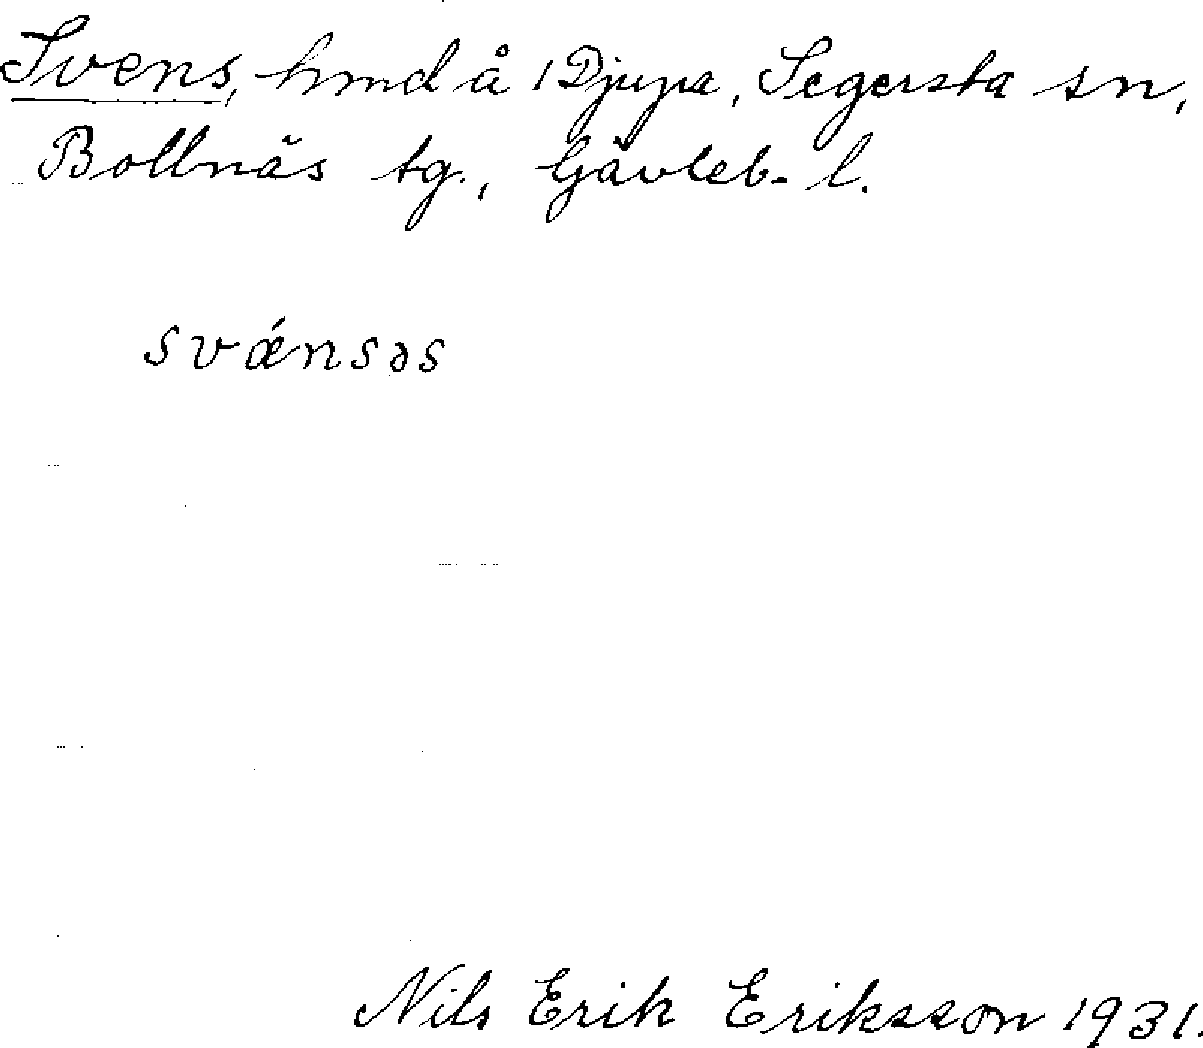 Svens, hmd å 1 Djupa, Segersta sn,
Bollnäs tg., Gävleb. l.
svǽnsəs
Nils Erik Eriksson 1931.